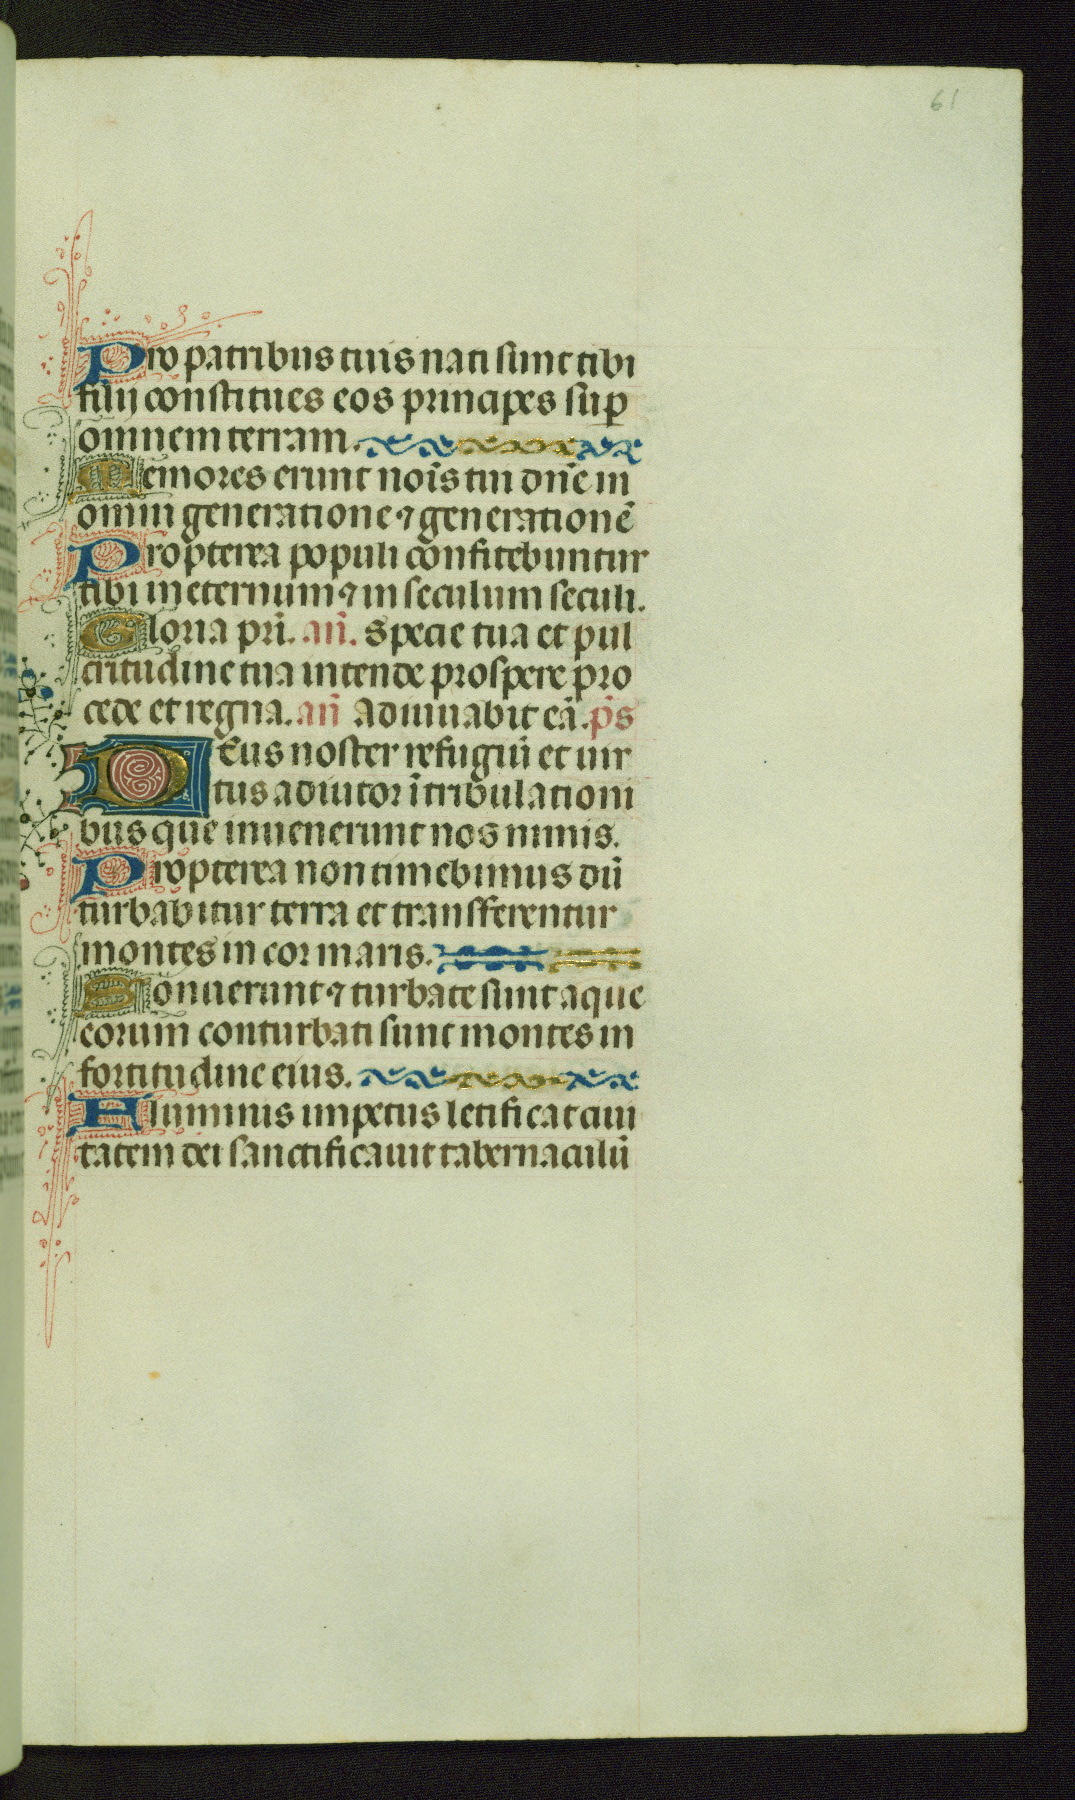 61
Pro patribus tuis nati sunt tibi
filij constitues eos principes sup̲
omnem terram.
Memores erunt nois̄ tui dn̄e in
omni generatione ⁊ generationē
Propterea populi confitebuntur
tibi in eternum ⁊ in seculum seculi.
Gloria pri̅. an̄. Specie tua et pul
critudine tua intende prospere pro
cede et regna. an̄ Adiuuabit eā. ps̄
Deus noster refugiū et uir
tus adiutor ī tribulationi
bus que inuenerunt nos nimis.
Propterea non timebimus dū
turbabitur terra et transferentur
montes in cor maris.
Sonuerunt ⁊ turbate sunt aque
eorum conturbati sunt montes in
fortitudine eius.
Fluminis impetus letificat ciui
tatem dei sanctificauit tabernaculū